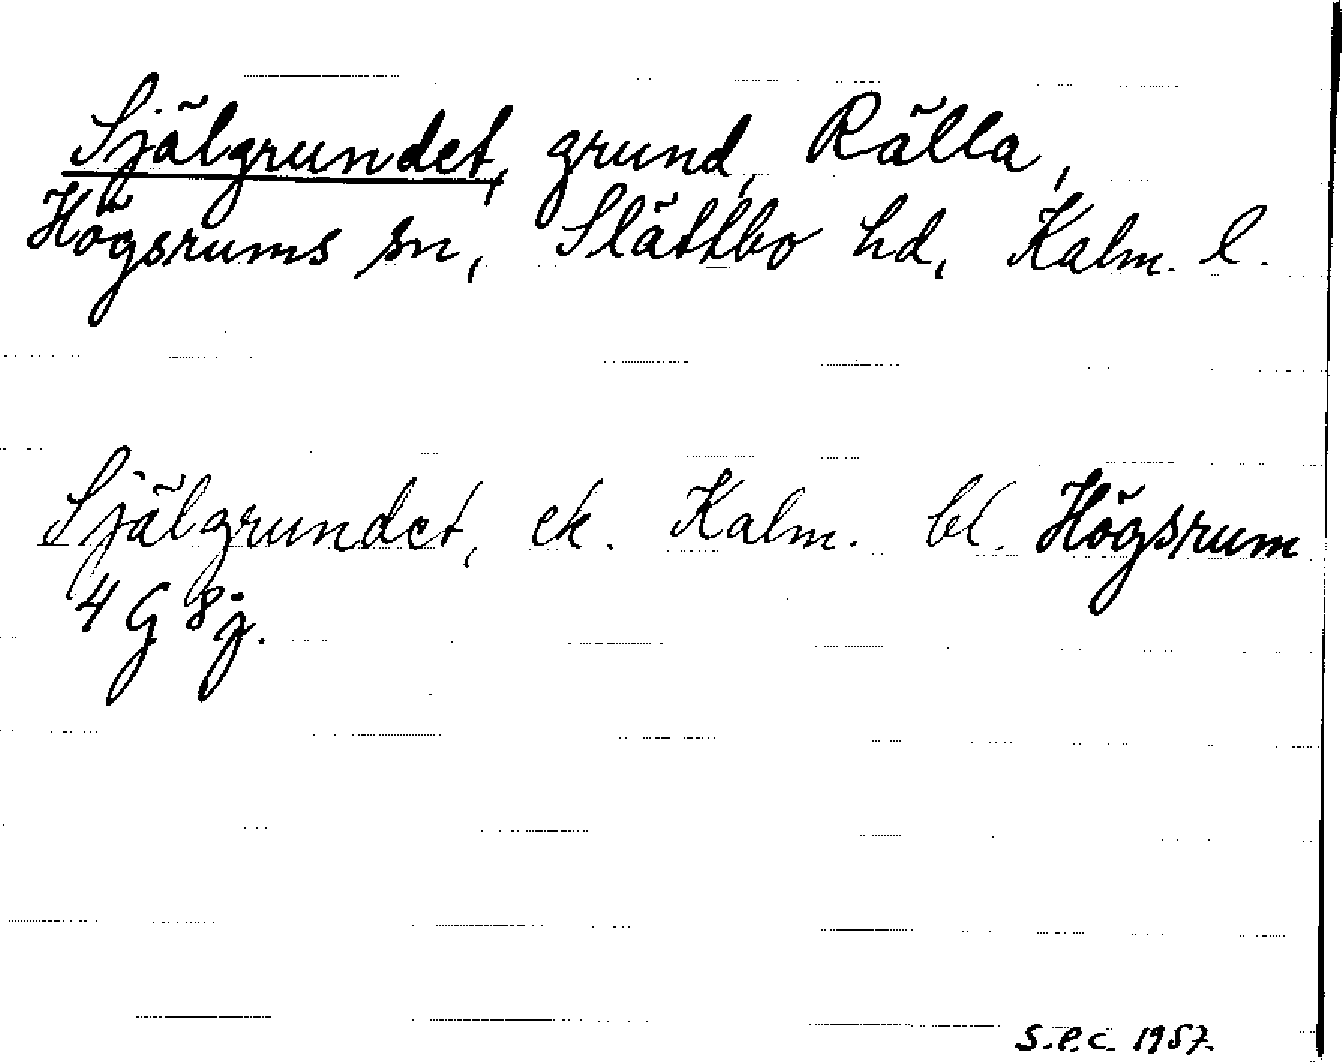 Själgrundet, grund, Rälla,
Högsrums sn, Slättbo hd, Kalm. l.
Själgrundet, ek. Kalm. bl. Högsrum
4 G 8 j.
S.E.C. 1957.